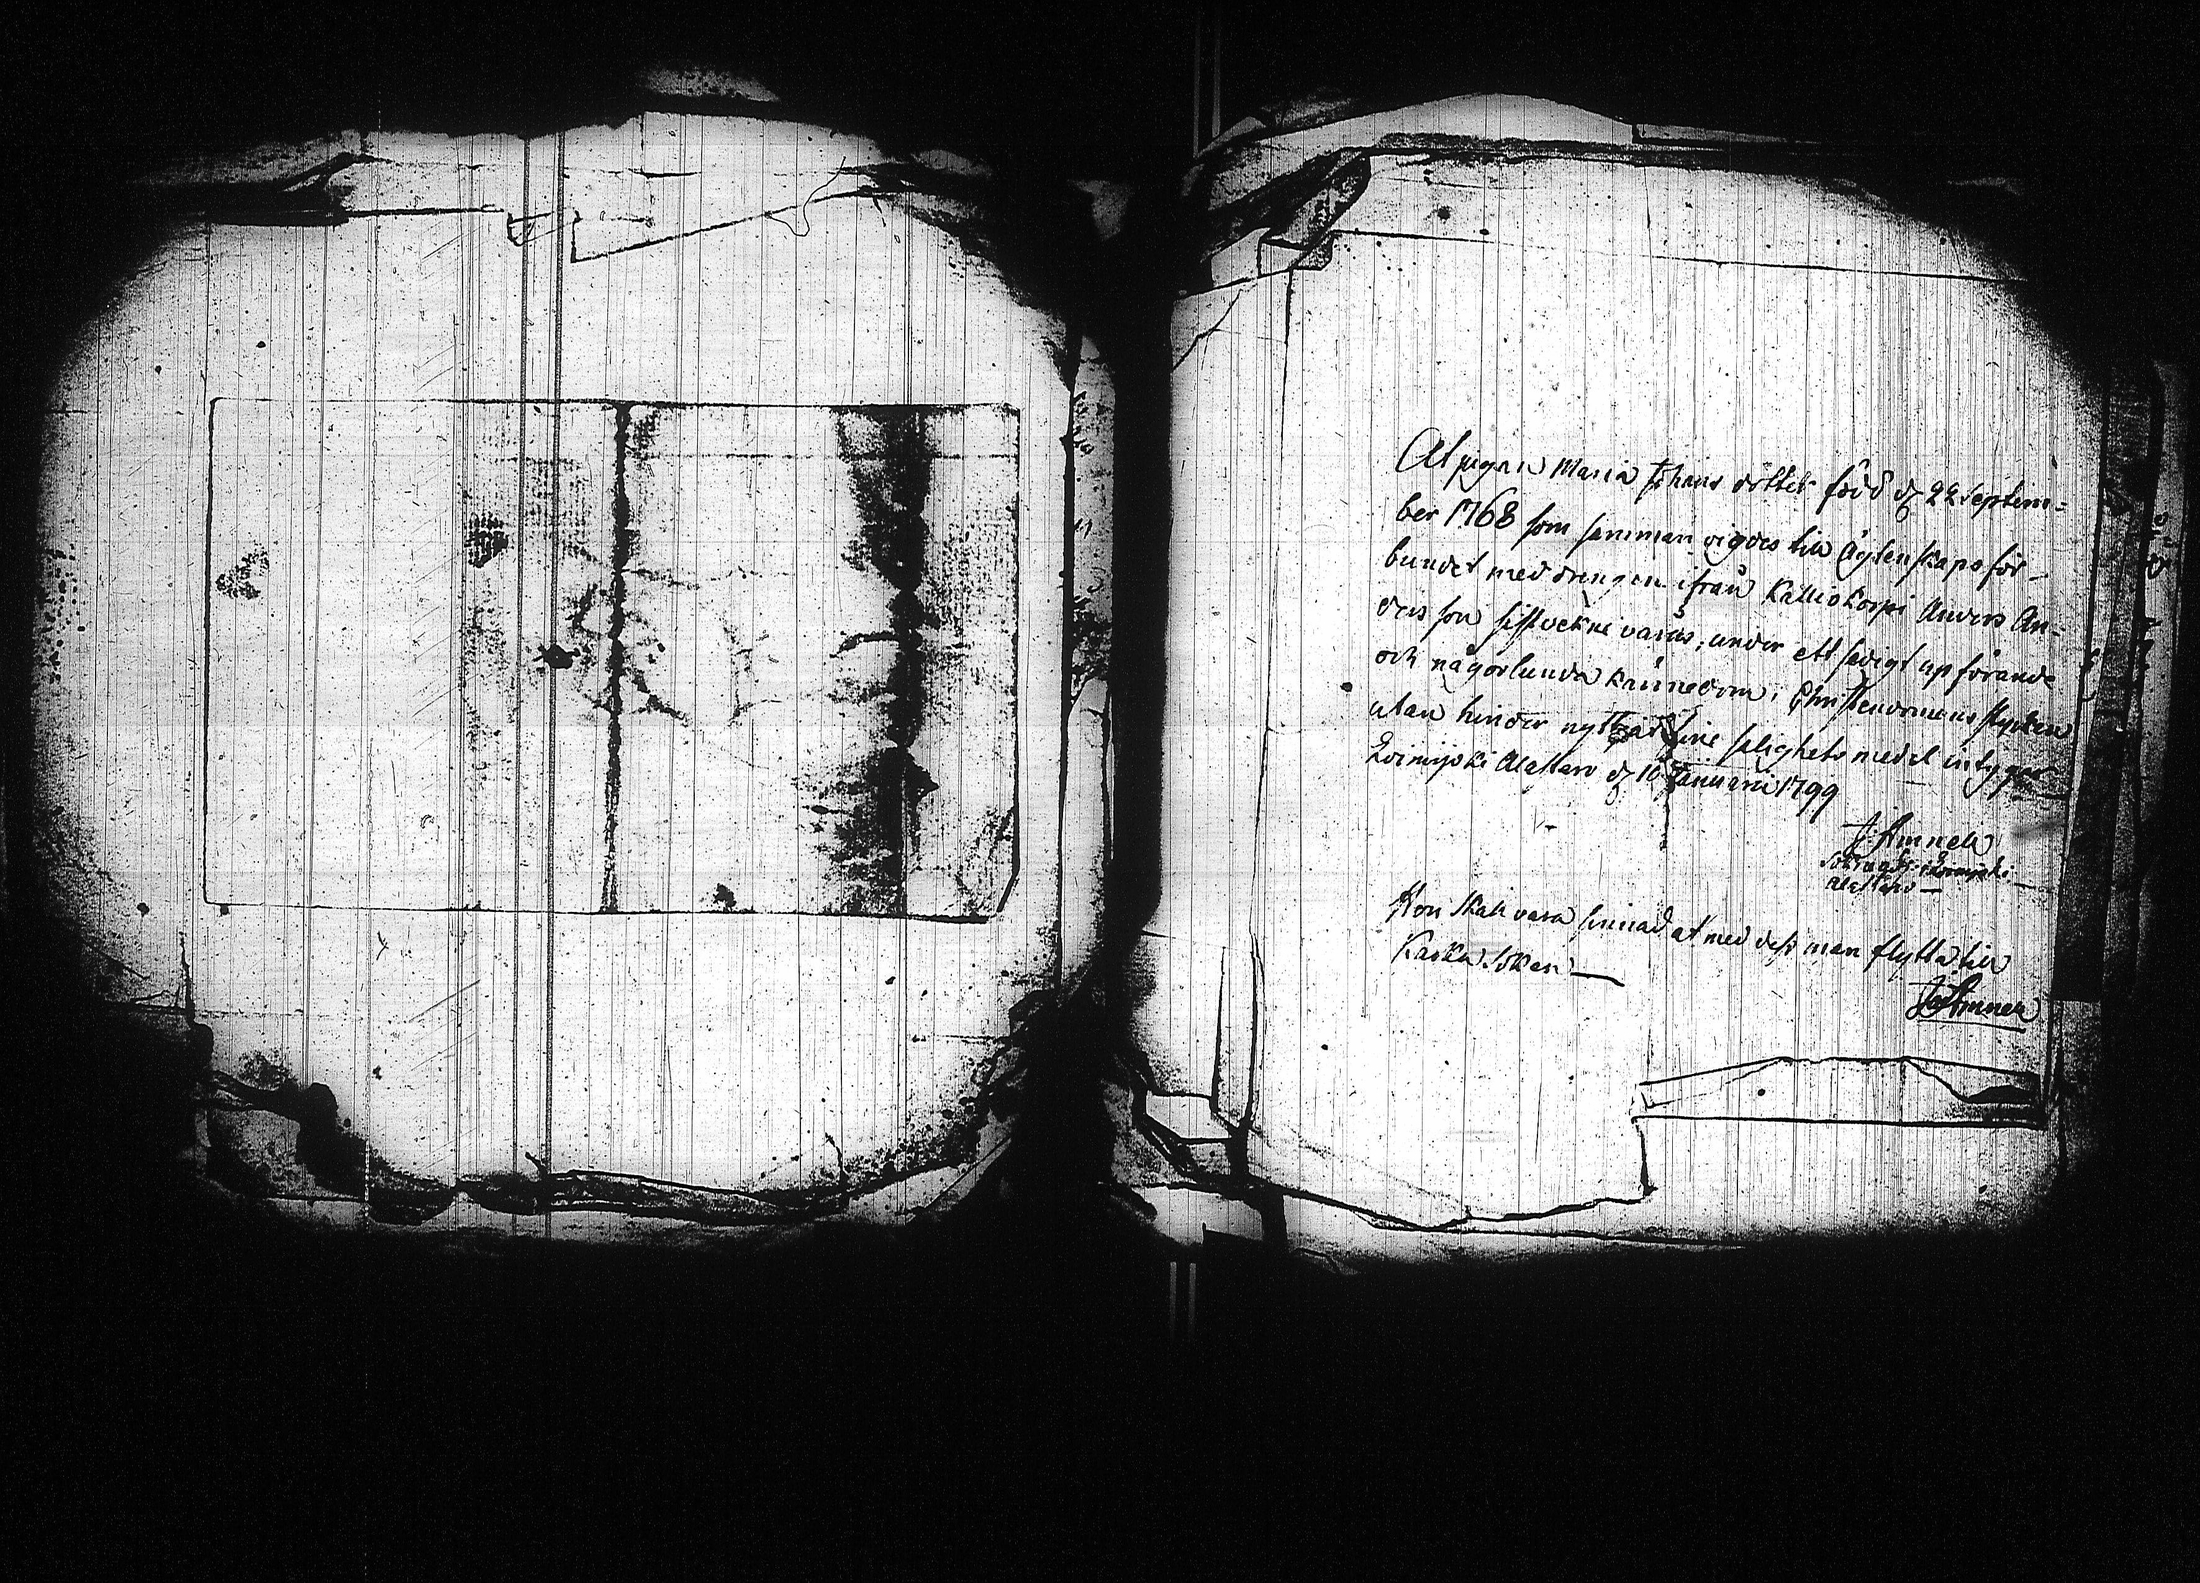 At pigan Maria Johans dotter född d 22 Septem-
ber 1768 som samman vigdes till Ägtenskaps för-
bundet med drengen ifrån Kalliokorpi Anders An-
ders son sistvekne vårås, under ett sedigt upförande
och någorlunda kännedom i Christendomens stycken
utan hinder nyttjat sine salighets medel intygar
Loimijoki Alastaro d 10 Januarii 1799
J: Amnell
Loimijoki
Alastaro
Hon skall vara sinnad at med dess man flytta till
Karku Soken
Amnell